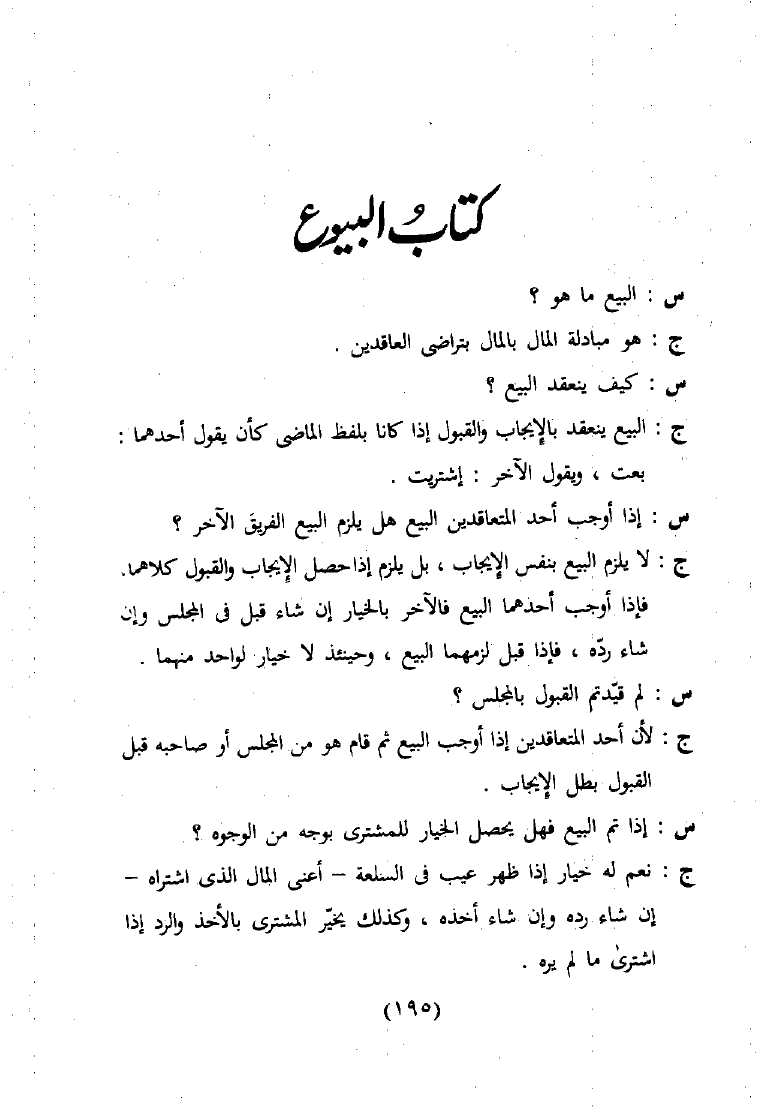 كتابُ البيوع
س : البيع ما هو ؟
ج : هو مبادلة المال بالمال بتراضى العاقدين .
س : كيف ينعقد البيع ؟
ج : البيع ينعقد بالإيجاب والقبول إذا كانا بلفظ الماضى كأن يقول أحدهما :
بعت ، ويقول الآخر : إشتريت .
س : إذا أوجب أحد المتعاقدين البيع هل يلزم البيع الفريقَ الآخر ؟
ج : لا يلزم البيع بنفس الإيجاب ، بل يلزم إذا حصل الإيجاب والقبول كلاهما.
فإذا أوجب أحدهما البيع فالآخر بالخيار إن شاء قبل فى المجلس وإن
شاء ردّه ، فإذا قبل لزمهما البيع ، وحينئذ لا خيار لواحد منهما .
س : لم قيّدتم القبول بالمجلس ؟
ج : لأن أحد المتعاقدين إذا أوجب البيع ثم قام هو من المجلس أو صاحبه قبل
القبول بطل الإيجاب .
س : إذا تم البيع فهل يحصل الخيار للمشترى بوجه من الوجوه ؟
ج : نعم له خيار إذا ظهر عيب فى السلعة – أعنى المال الذى اشتراه –
إن شاء رده وإن شاء أخذه ، وكذلك يخيّر المشترى بالأخذ والرد إذا
اشترىٰ ما لم يره .
(١٩٥)